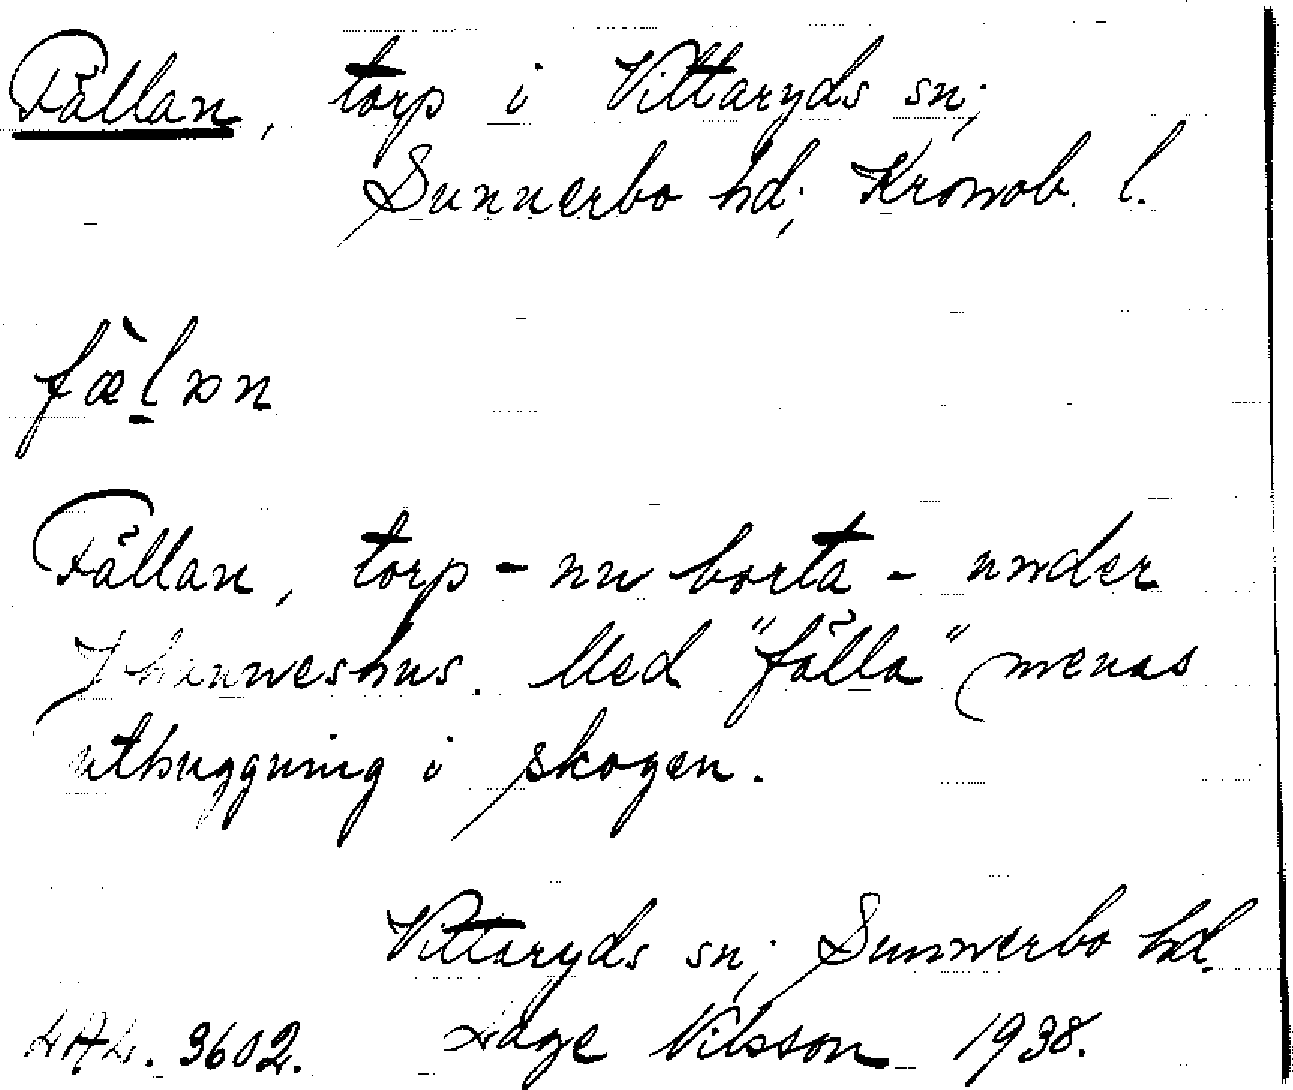 Fällan, torp i Vittaryds sn;
Sunnerbo hd; Kronob. l.
fæ̀l̠ən
Fällan, torp - nu borta - under
Johanneshus. Med "fälla" menas
uthuggning i skogen.
Vittaryds sn; Sunnerbo hd.
LAL. 3602. Sage Nilsson 1938.